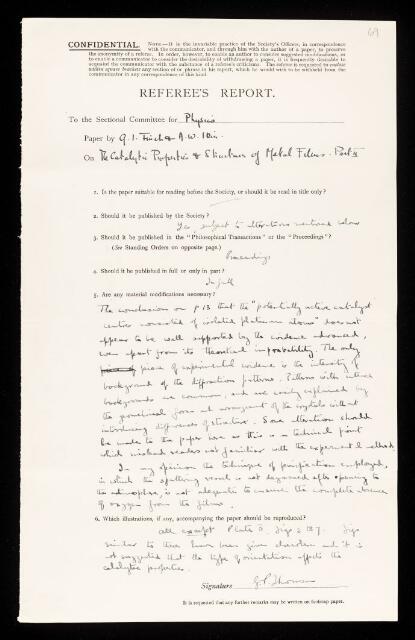 69
CONFIDENTIAL. NOTE—It is the invariable practice of the Society's Officers, in correspondence
with the communicator, and through him with the author of a paper, to preserve
the anonymity of a referee. In order, however, to enable an author to consider suggested modifications, or
to enable a communicator to consider the desirability of withdrawing a paper, it is frequently desirable to
acquaint the communicator with the substance of a referee's criticisms. The referee is requested to enclose
within square brackets any section of or phrase in his report, which he would wish to be withheld from the
communicator in any correspondence of this kind.
REFEREE'S REPORT.
To the Sectional Committee for Physics
Paper by G. I. Finch & A. W. Ikin
On The Catalytic Properties & Structure of Metal Films. Part II
1. Is the paper suitable for reading before the Society, or should it be read in title only?
2. Should it be published by the Society?
Yes subject to alterations mentioned below
3. Should it be published in the "Philosophical Transactions" or the "Proceedings"?
(See Standing Orders on opposite page.)
Proceedings
4. Should it be published in full or only in part?
In full
5. Are any material modifications necessary?
The conclusion on p 13 that the "potentially active catalyst
centres consisted of isolated platinum atoms" does not
appear to be well supported by the evidence advanced,
even apart from its theoretical improbability. The only
piece of experimental evidence is the intensity of
background of the diffraction patterns. Patterns with intense
backgrounds are common, and are easily explained by
the geometrical form and arrangement of the crystals without
introducing differences of structure. Some alteration should
be made to the paper here as this is a technical point
which mislead readers not familiar with the experimental method.
In my opinion the technique of purification employed,
in which the sputtering vessel is not degassed after opening to
the atmosphere, is not adequate to ensure the complete absence
of oxygen from the films.
6. Which illustrations, if any, accompanying the paper should be reproduced?
All except Plate 2, figs 2 & 7. Figs
similar to these have been given elsewhere and it is
not suggested that the type of orientation affects the
catalytic properties.
Signature G P Thomson
It is requested that any further remarks may be written on foolscap paper.